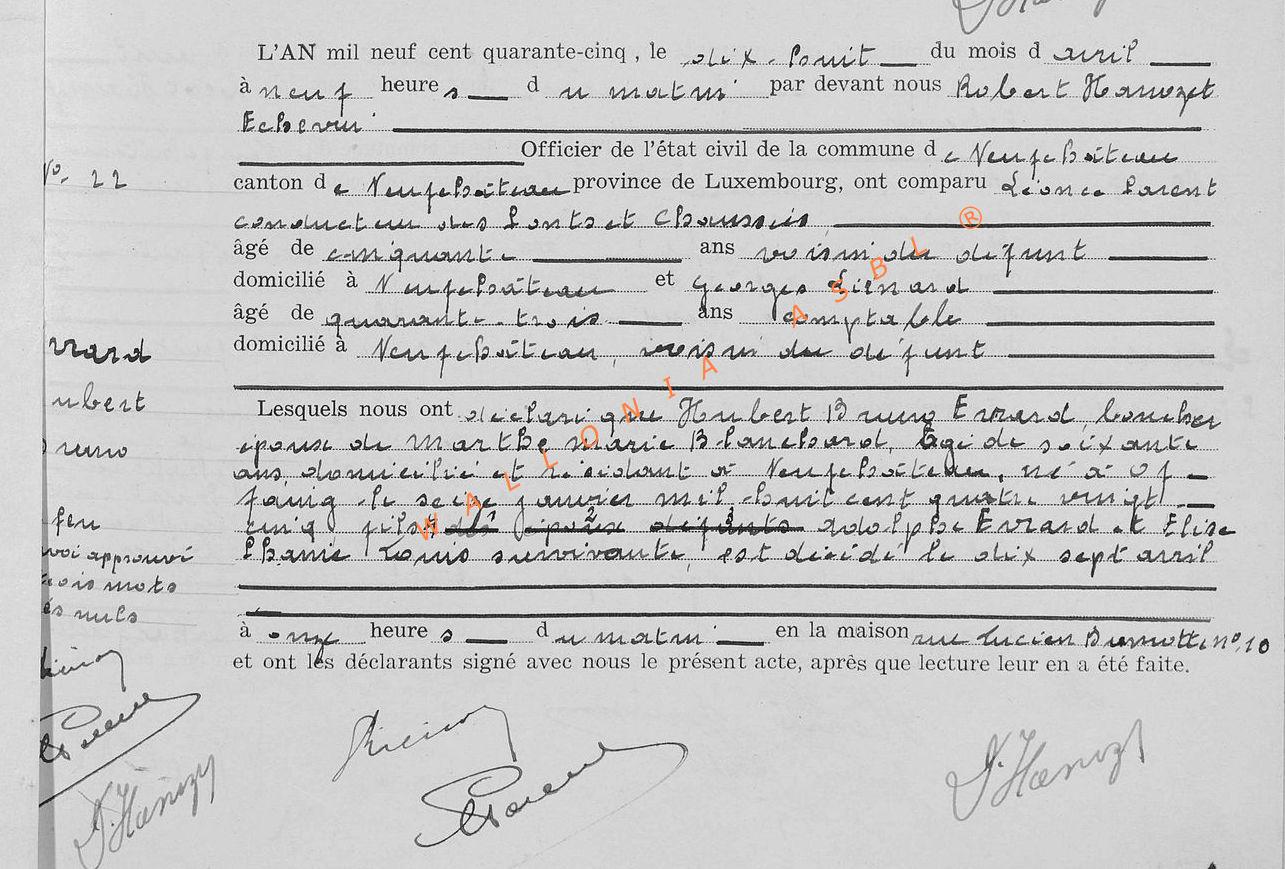 L'AN mil neuf cent quarante-cinq, le dix-huit du mois d avril
à neuf heures du matin par devant nous Robert Hanozet
Echevin
Officier de l'état civil de la commune de Neufchâteau
No. 22
canton de Neufchâteau province de Luxembourg, ont comparu Léonce Parent
conducteur des Ponts et Chaussées,
âgé de cinquante ans voisin du défunt
domicilié à Neufchâteau et Georges Liénard
âgé de quarante-trois ans comptable
domicilié à Neufchâteau, voisin du défunt
vrard
ubert
runo
Lesquels nous ont déclaré que Hubert Bruno Evrard, boucher
époux de Marthe Marie Blanchard, âgé de soixante
ans, domicilié et résidant à Neufchâteau, né à Of-
faing le seize janvier mil huit cent quatre vingt
cinq fils des époux défunts Adolphe Evrard et Elise
feu
voi approuvé
rois mots
és nuls
survivante, est décédé le dix sept avril
à onze heures du matin en la maison rue Lucien Burnotte no. 10
et ont les déclarants signé avec nous le présent acte, après que lecture leur en a été faite.
WALLONIA ASBL ®